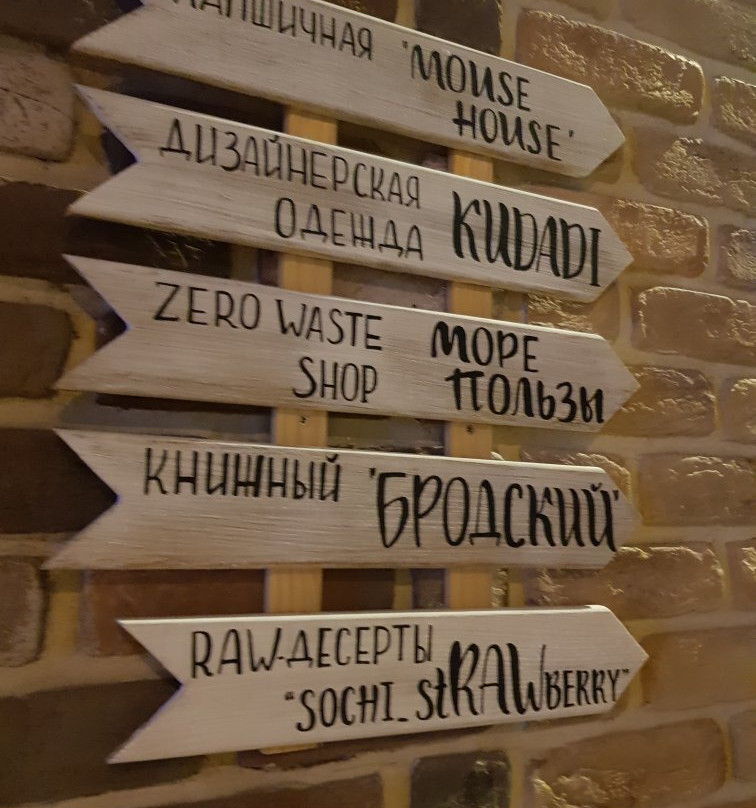 ЛАПШИЧНАЯ 'MOUSE
HOUSE'
ДИЗАЙНЕРСКАЯ
ОДЕЖДА KUDADI
ZERO WASTE МОРЕ
SHOP ПОЛЬЗЫ
КНИЖНЫЙ 'БРОДСКИЙ'
RAW-ДЕСЕРТЫ
"SOCHI_StRAWBERRY"